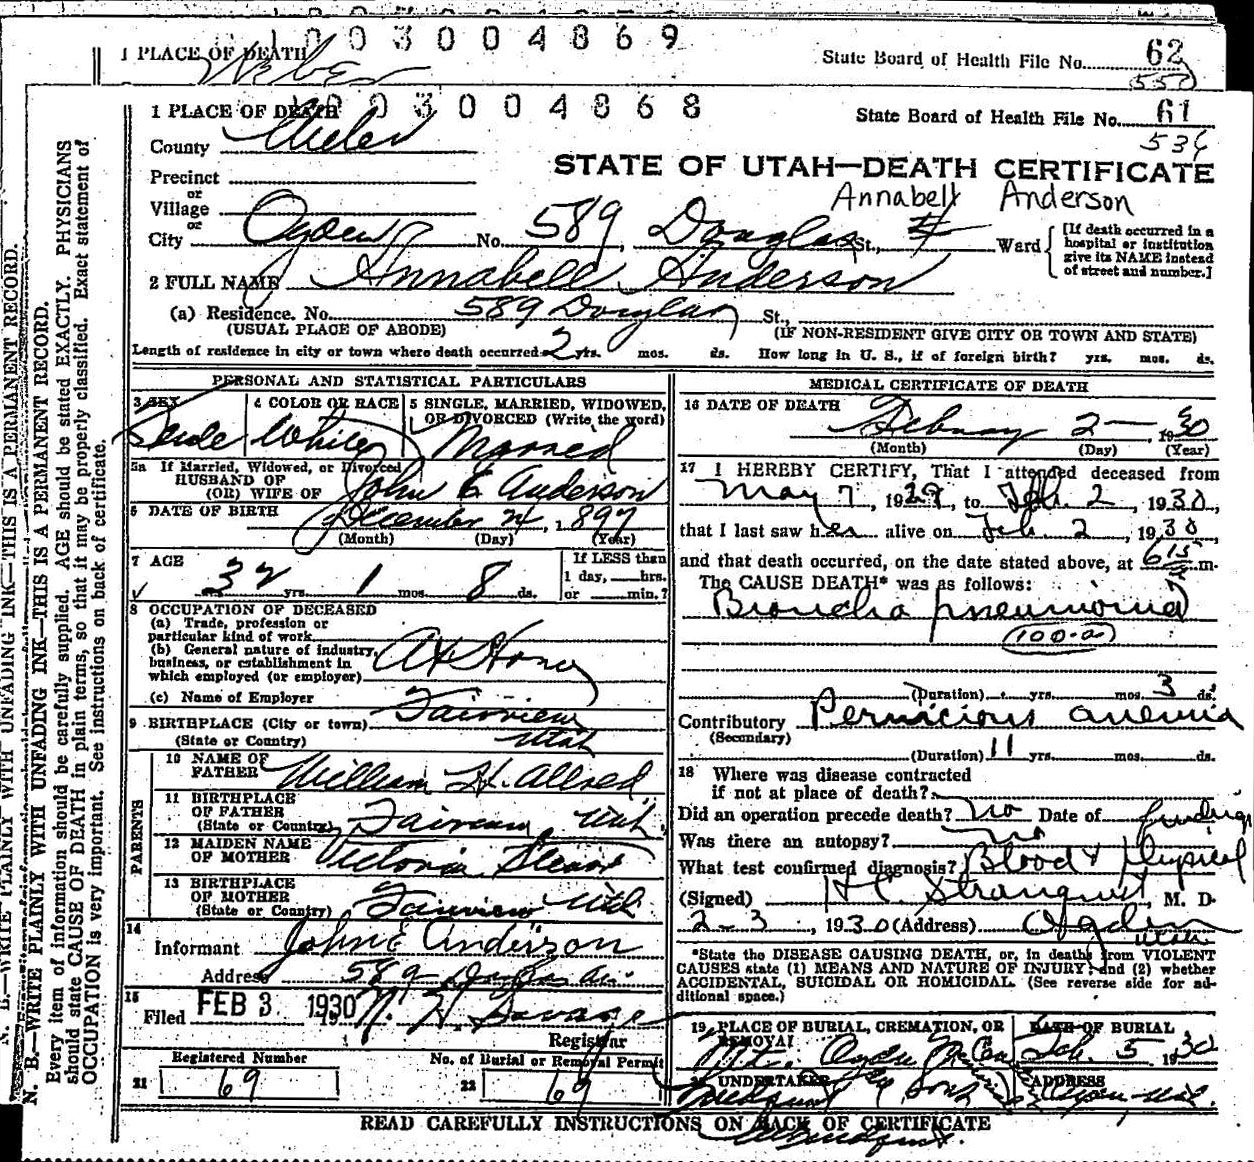 1003004869
1 PLACE OF DEATH
Weber
State Board of Health File No. 62
550
1003004868
1 PLACE OF DEATH
State Board of Health File No. 61
536
County Weber
STATE OF UTAH—DEATH CERTIFICATE
Annabell Anderson
Precinct
or
Village
or
City Ogden No. 589, Douglas St., 4 Ward
[If death occurred in a
hospital or institution
give its NAME instead
of street and number.]
2 FULL NAME Annabell Anderson
(a) Residence. No. 589 Douglas St.,
(USUAL PLACE OF ABODE) (IF NON-RESIDENT GIVE CITY OR TOWN AND STATE)
Length of residence in city or town where death occurred 2 yrs. mos. ds. How long in U. S., if of foreign birth? yrs. mos. ds.
PERSONAL AND STATISTICAL PARTICULARS
3 SEX 4 COLOR OR RACE 5 SINGLE, MARRIED, WIDOWED,
OR DIVORCED (Write the word)
Female White Married
5a If Married, Widowed, or Divorced
HUSBAND OF
(OR) WIFE OF John E Anderson
6 DATE OF BIRTH December 24, 1897
(Month) (Day) (Year)
7 AGE 32 yrs. 1 mos. 8 ds.
If LESS than
1 day, hrs.
or min.?
8 OCCUPATION OF DECEASED
(a) Trade, profession or
particular kind of work
(b) General nature of industry,
business, or establishment in
which employed (or employer)
At Home
(c) Name of Employer
9 BIRTHPLACE (City or town) Fairview
(State or Country) Utah
PARENTS
10 NAME OF
FATHER William H. Allred
11 BIRTHPLACE
OF FATHER
(State or Country) Fairview Utah
12 MAIDEN NAME
OF MOTHER Victoria
13 BIRTHPLACE
OF MOTHER
(State or Country) Fairview Utah
14
Informant John E Anderson
Address 589 Douglas
15
Filed FEB 3 1930
Registrar
Registered Number No. of Burial or Removal Permit
21 69 22 69
MEDICAL CERTIFICATE OF DEATH
16 DATE OF DEATH February 2 1930
(Month) (Day) (Year)
17 I HEREBY CERTIFY, That I attended deceased from
May 7, 1929, to Feb. 2, 1930,
that I last saw her alive on Feb. 2, 1930
and that death occurred, on the date stated above, at 615 m.
The CAUSE DEATH* was as follows:
Broncho pneumonia
100-a
(Duration) yrs. mos. 3 ds.
Contributory Pernicious anemia
(Secondary)
(Duration) 11 yrs. mos. ds.
18 Where was disease contracted
if not at place of death?
Did an operation precede death? no Date of
Was there an autopsy? no
What test confirmed diagnosis? Blood & Physical findings
(Signed) H.C. Stranquist, M. D.
2-3, 1930 (Address) Ogden
Utah
*State the DISEASE CAUSING DEATH, or, in deaths from VIOLENT
CAUSES state (1) MEANS AND NATURE OF INJURY; and (2) whether
ACCIDENTAL, SUICIDAL OR HOMICIDAL. (See reverse side for ad-
ditional space.)
19 PLACE OF BURIAL, CREMATION, OR
REMOVAL
DATE OF BURIAL
Mt. Ogden Feb. 5 1930
20 UNDERTAKER ADDRESS
Lindquist & Sons Ogden-Utah.
READ CAREFULLY INSTRUCTIONS ON BACK OF CERTIFICATE
N. B.—WRITE PLAINLY WITH UNFADING INK—THIS IS A PERMANENT RECORD.
N. B.—WRITE PLAINLY WITH UNFADING INK—THIS IS A PERMANENT RECORD.
Every item of information should be carefully supplied. AGE should be stated EXACTLY. PHYSICIANS
should state CAUSE OF DEATH in plain terms, so that it may be properly classified. Exact statement of
OCCUPATION is very important. See instructions on back of certificate.